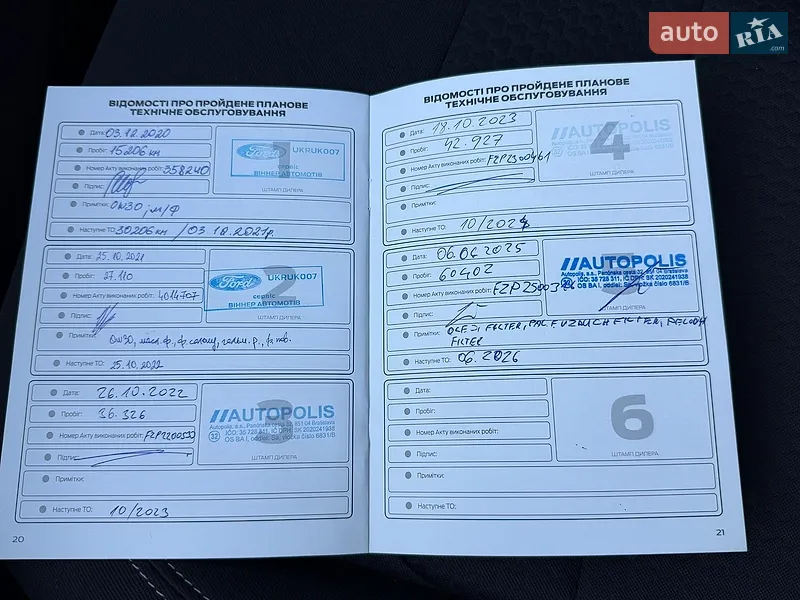 auto RIA .com
ВІДОМОСТІ ПРО ПРОЙДЕНЕ ПЛАНОВЕ
ТЕХНІЧНЕ ОБСЛУГОВУВАННЯ
Дата: 03.12.2020
Пробіг: 15206 км
Номер Акту виконаних робіт: 358240
Підпис:
1
Ford UKRUK007
сервіс
ВІННЕР АВТОМОТІВ
ШТАМП ДИЛЕРА
Примітки: 0W30, м/ф
Наступне ТО: 30206 км / 03.12.2021р.
Дата: 25.10.2021
Пробіг: 27.110
Номер Акту виконаних робіт: 4014707
Підпис:
2
Ford UKRUK007
сервіс
ВІННЕР АВТОМОТІВ
ШТАМП ДИЛЕРА
Примітки: 0W30, масл.ф, ф.салону, гальм.р., ф.пов.
Наступне ТО: 25.10.2022
Дата: 26.10.2022
Пробіг: 36.326
Номер Акту виконаних робіт: FZP2200533
Підпис:
3
//AUTOPOLIS
Autopolis, a.s., Panónska cesta 32, 851 04 Bratislava
IČO: 35 728 311, IČ DPH: SK 2020241938
32 OS BA I, oddiel: Sa, vložka číslo 6831/B
ШТАМП ДИЛЕРА
Примітки:
Наступне ТО: 10/2023
20
ВІДОМОСТІ ПРО ПРОЙДЕНЕ ПЛАНОВЕ
ТЕХНІЧНЕ ОБСЛУГОВУВАННЯ
Дата: 18.10.2023
Пробіг: 42.927
Номер Акту виконаних робіт: FZP2300461
Підпис:
4
//AUTOPOLIS
ШТАМП ДИЛЕРА
Примітки:
Наступне ТО: 10/2024
Дата: 06.06.2025
Пробіг: 60402
Номер Акту виконаних робіт: FZP2500
Підпис:
//AUTOPOLIS
Autopolis, a.s., Panónska cesta 32, 851 04 Bratislava
IČO: 35 728 311, IČ DPH: SK 2020241938
OS BA I, oddiel: Sa, vložka číslo 6831/B
ШТАМП ДИЛЕРА
Примітки: OLEJ, FILTER, VZDUCH FILTER, PEĽOVÝ
FILTER
Наступне ТО: 06.2026
Дата:
Пробіг:
Номер Акту виконаних робіт:
Підпис:
6
ШТАМП ДИЛЕРА
Примітки:
Наступне ТО:
21